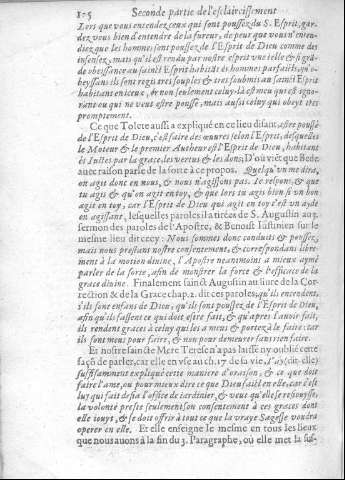 125 Seconde partie de l'esclaircissement
Lors que vous entendez ceux qui sont poussez du S. Esprit, gar-
dez vous bien d'entendre de la fureur, de peur que vous n'enten-
diez que les hommes sont poussez de l'Esprit de Dieu comme des
insensez, mais qu'il est rendu par nostre esprit une telle & si grã-
de obeissance au sainct Esprit habitãt és hommes parfaicts, qu'o-
beyssans ils sont regis tres souples & tres soubmis au sainct Esprit
habitant en iceux, & non seulement celuy-là est meu qui est igno-
rant ou qui ne veut estre poussé, mais aussi celuy qui obeyt tres
promptement.
Ce que Tolete aussi a expliqué en ce lieu disant, estre poussé
de l'Esprit de Dieu, c'est faire des œuvres selon l'Esprit, desquelles
le Moteur & le premier Autheur est l'Esprit de Dieu, habitant
és Iustes par la grace, les vertus & les dons, D'où viẽt que Bede
auec raison parle de la sorte à ce propos. Quelqu'un me dira,
on agit donc en nous, & nous n'agissons pas. Ie respons, & que
tu agis & qu'on agit en toy, & que lors tu agis bien si un bon
agit en toy, car l'Esprit de Dieu qui agit en toy c'est un ayde
en agissant, lesquelles paroles il a tirées de S. Augustin au 13.
sermon des paroles de l'Apostre, & Benoist Iustinien sur le
mesme lieu dit cecy: Nous sommes donc conduits & poussez,
mais nous prestans nostre consentement, & correspondans libre-
ment à la motion diuine, l'Apostre neantmoins a mieux aymé
parler de la sorte, afin de monstrer la force & l'efficace de la
grace diuine. Finalement sainct Augustin au liure de la Cor-
rection & de la Grace chap. 2. dit ces paroles, qu'ils entendent,
s'ils sont enfans de Dieu, qu'ils sont poussez de l'Esprit de Dieu,
afin qu'ils fassent ce qui doit estre fait, & qu'apres l'auoir fait,
ils rendent graces à celuy qui les a meus & portez à le faire: car
ils sont meus pour faire, & non pour demeurer sans rien faire.
Et nostre saincte Mere Terese n'a pas laissé ny oublié cette
façõ de parler, car elle en use au ch. 17 de sa vie, I'ay (dit-elle)
suffisamment expliqué cette maniere d'oraison, & ce que doit
faire l'ame, ou pour mieux dire ce que Dieu fait en elle, car c'est
luy qui fait desia l'office de Iardinier, & veut qu'elle se resiouysse,
la volonté preste seulement son consentement à ces graces dont
elle iouyt, & se doit offrir à tout ce que la vraye Sagesse voudra
operer en elle. Et elle enseigne le mesme en tous les lieux
que nous auons à la fin du 3. Paragraphe, où elle met la sus-